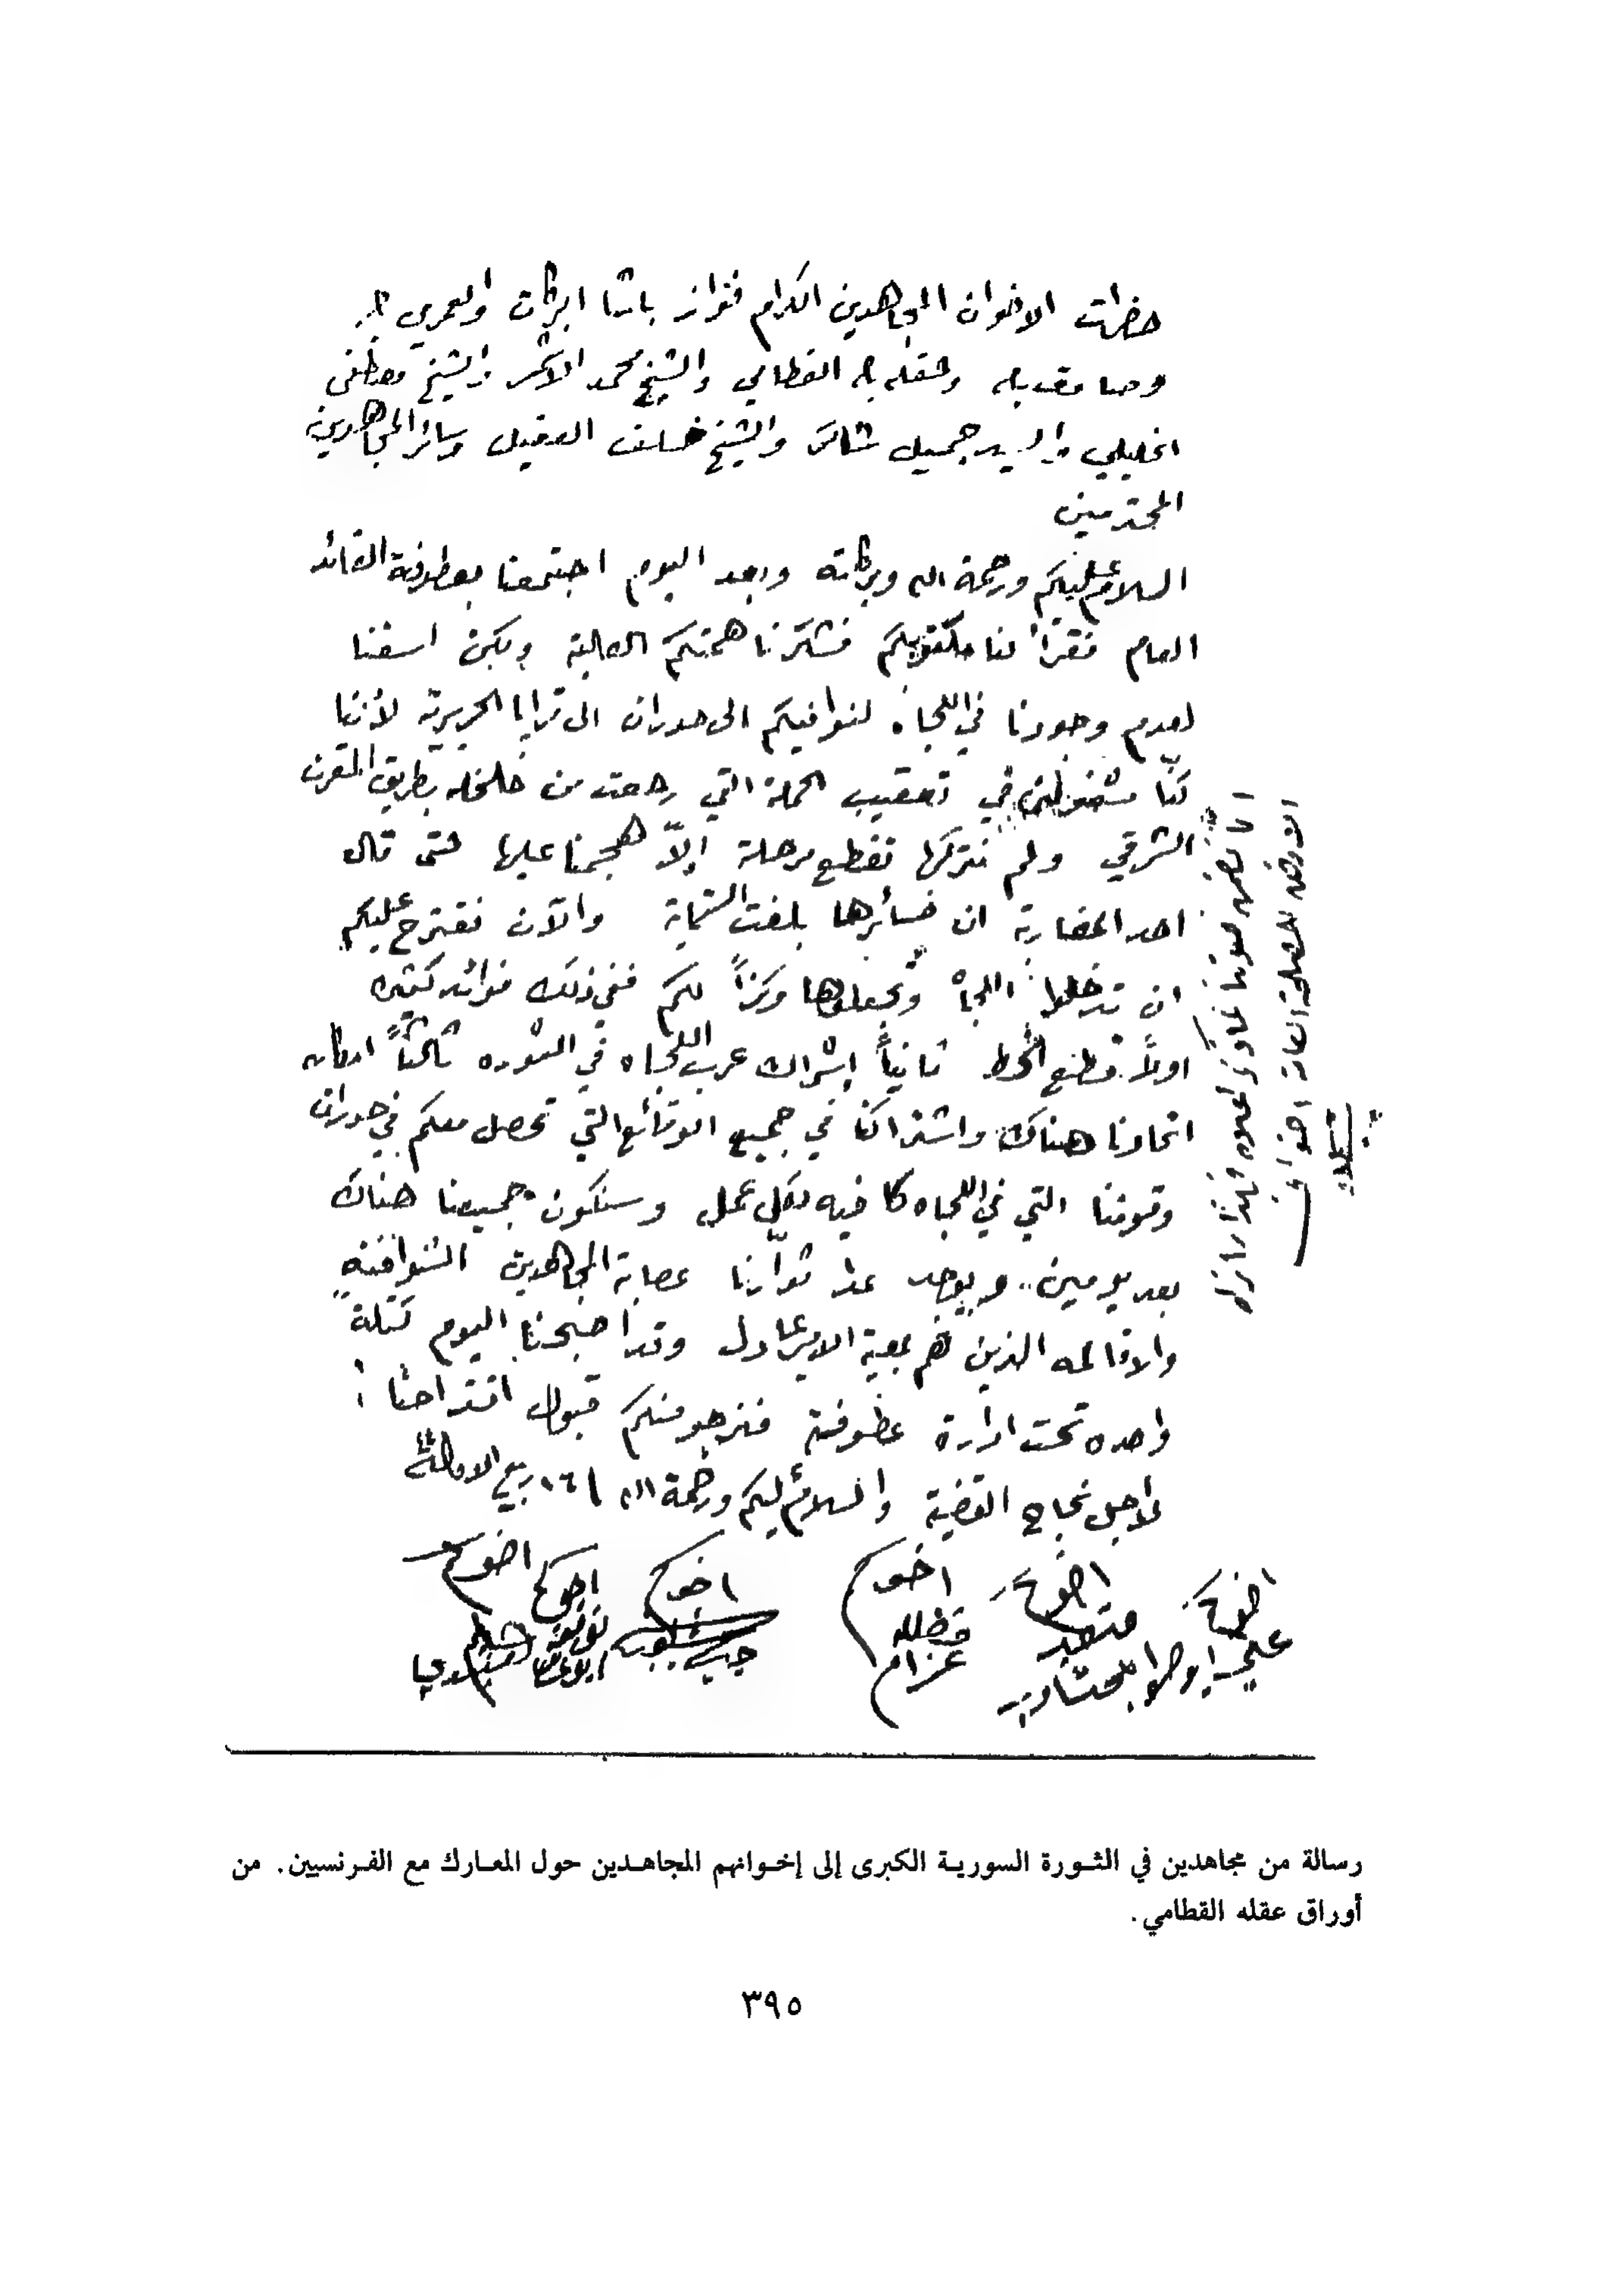 حضرات الاخوان المجاهدين الكرام فواز باشا البركات والعمري بك
وعقله بك القطامي والشيخ محمد الاشمر والشيخ مصطفى
الخليلي والسيد جميل شاكر والشيخ خلف المقبل وسائر المجاهدين
المحترمين
السلام عليكم ورحمة الله وبركاته وبعد اليوم اجتمعنا بعطوفة القائد
العام فقرأ لنا مكتوبكم فشكرنا همتكم العالية ولكن اسفنا
لعدم وجودنا في اللجاه لنوافيكم الى حوران الى قرايا الحريرية لأننا
كنّا مشغولين في تعقيب الحملة التي رجعت من خلخله بطريق المقرن
الشرقي ولم نتركها تقطع مرحلة إلاّ هجمنا عليها حتى قال
احد المغاربة ان خسائرها بلغت الستماية والآن نقترح عليكم
ان تدخلوا اللجاه وتجعلوها مركزاً لكم ففي ذلك فوائد كثيره
اولاً قطع الخط ثانياً إشراك عرب اللجاه في الثوره ثالثاً امكان
اتحادنا هناك واشتراكنا في جميع الوقائع التي تحصل معكم في حوران
وقوتنا التي في اللجاه كافيه لكل عمل وسنكون جميعنا هناك
بعد يومين .. ويوجد عدا ثوّارنا عصابة المجاهدين الشواغنه
والذين هم بمعية الامير عادل وقد اصبحنا اليوم كتلة
واحده تحت ادارة عطوفته فنرجو منكم قبول اقتراحنا
لاجل نجاح القضية والسلام عليكم ورحمة الله ١٦ ربيع الاول
اخوكم
اخوكم
اخوكم
اخوكم
اخوكم
اخوكم
علي
متعب
فضل الله
عزام
رسالة من مجاهدين في الثورة السورية الكبرى إلى إخوانهم المجاهدين حول المعارك مع الفرنسيين. من
أوراق عقله القطامي.
٣٩٥